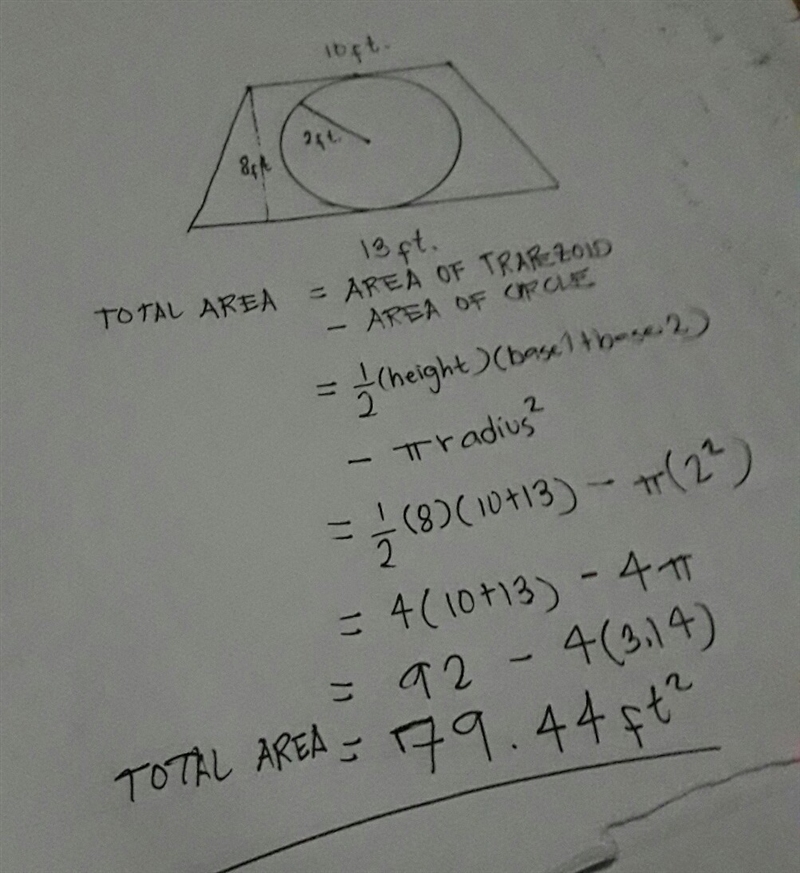 10ft.
2ft.
8ft
13 ft.
TOTAL AREA = AREA OF TRAPEZOID
- AREA OF CIRCLE
= 1/2 (height)(base1+base2)
- π radius²
= 1/2 (8)(10+13) - π(2²)
= 4(10+13) - 4π
= 92 - 4(3.14)
TOTAL AREA = 79.44 ft²